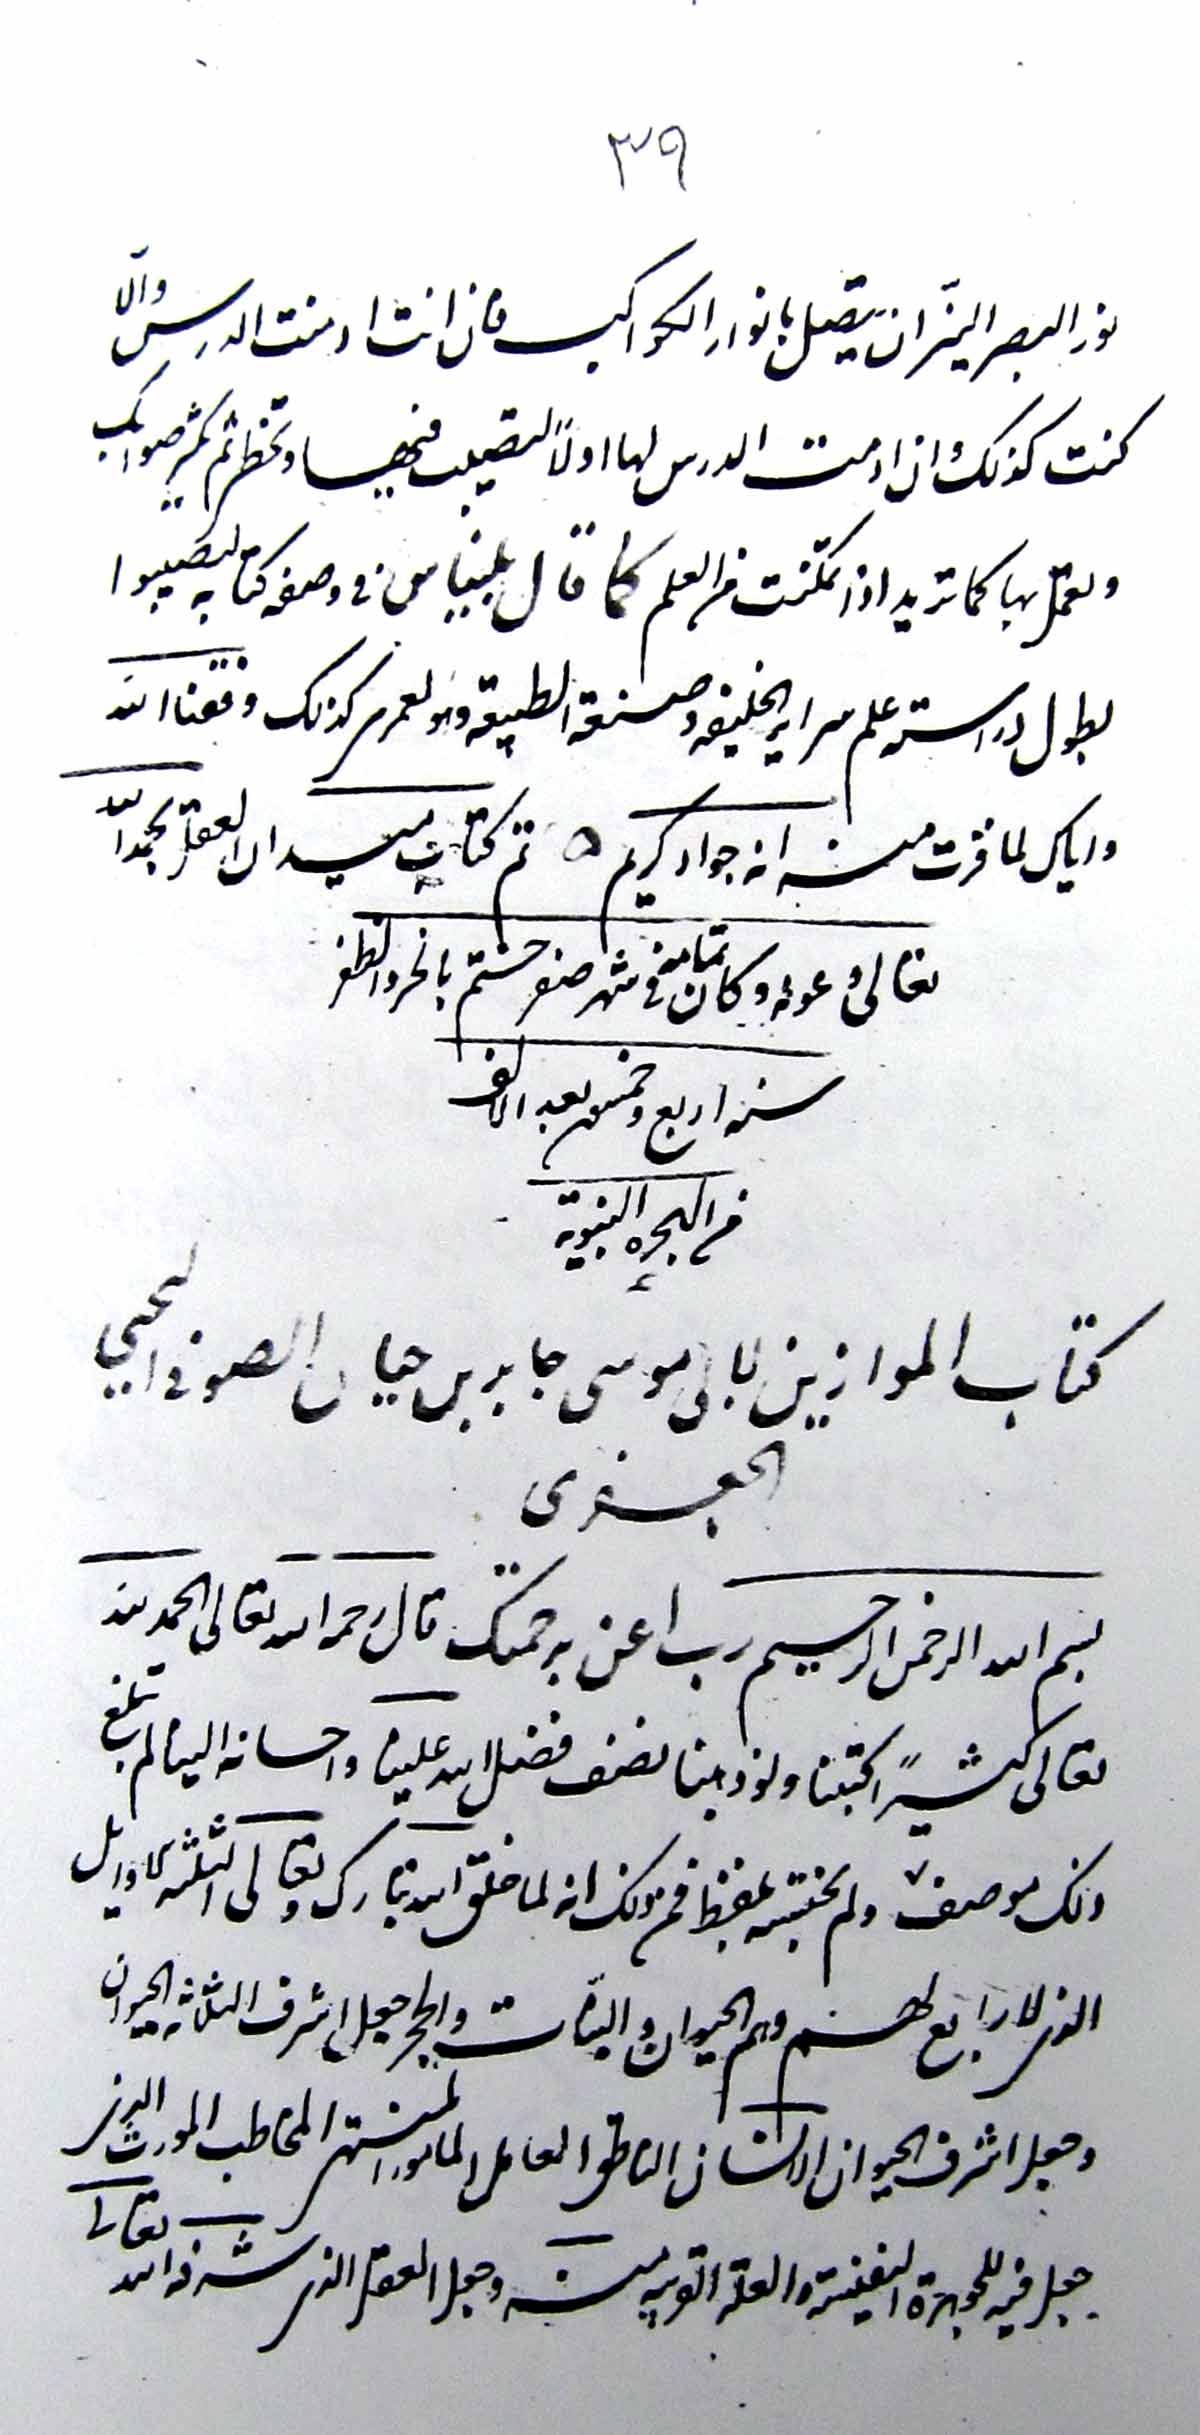 ٣٩
نور البصر النيّر ان يتصل بانوار الكواكب فان انت ادمنت الدرس والّا
كنت كذلك وان ادمت الدرس لها اولاً لتصيب فيها وتخطى ثم يكثر صوابك
وتعمل بها كما تريد اذا تمكّنت من العلم كما قال بليناس في وصفه كتابه لتصيبوا
بطول دراسته علم سراير الخليفة وصنعة الطبيعة وهو لعمرى كذلك وفقنا الله
واياك لما قرب منه انه جواد كريم ه تم كتاب ميدان العقل بحمد الله
تعالى وعونه وكان تمامه في شهر صفر ختم بالخير والظفر
سنه اربع وخمسين بعد الالف
من الهجره النبوية
كتاب الموازين لابى موسى جابر بن حيان الصوفى اليحيى
الجعفرى
بسم الله الرحمن الرحيم رب اعن برحمتك قال رحمه الله تعالى الحمد لله
تعالى كثيراً كتبنا ولو ذهبنا نصف فضل الله علينا واحسانه الينا لم تبلغ
ذلك موصف ولم بلفظ فمن ذلك انه لما خلق الله تبارك وتعالى الثلثة الاوايل
الذى لا رابع لهم وهم الحيوان والنبات والحجر جعل اشرف الثلاثه الحيوان
وجعل اشرف الحيوان الانسان الناطق العامل المامور المنتهى المخاطب المورث الذى
جعل فيه للجوهرة النفيسة والعلة القريبه منه وجعل العقل الذى شرفه الله تعالى